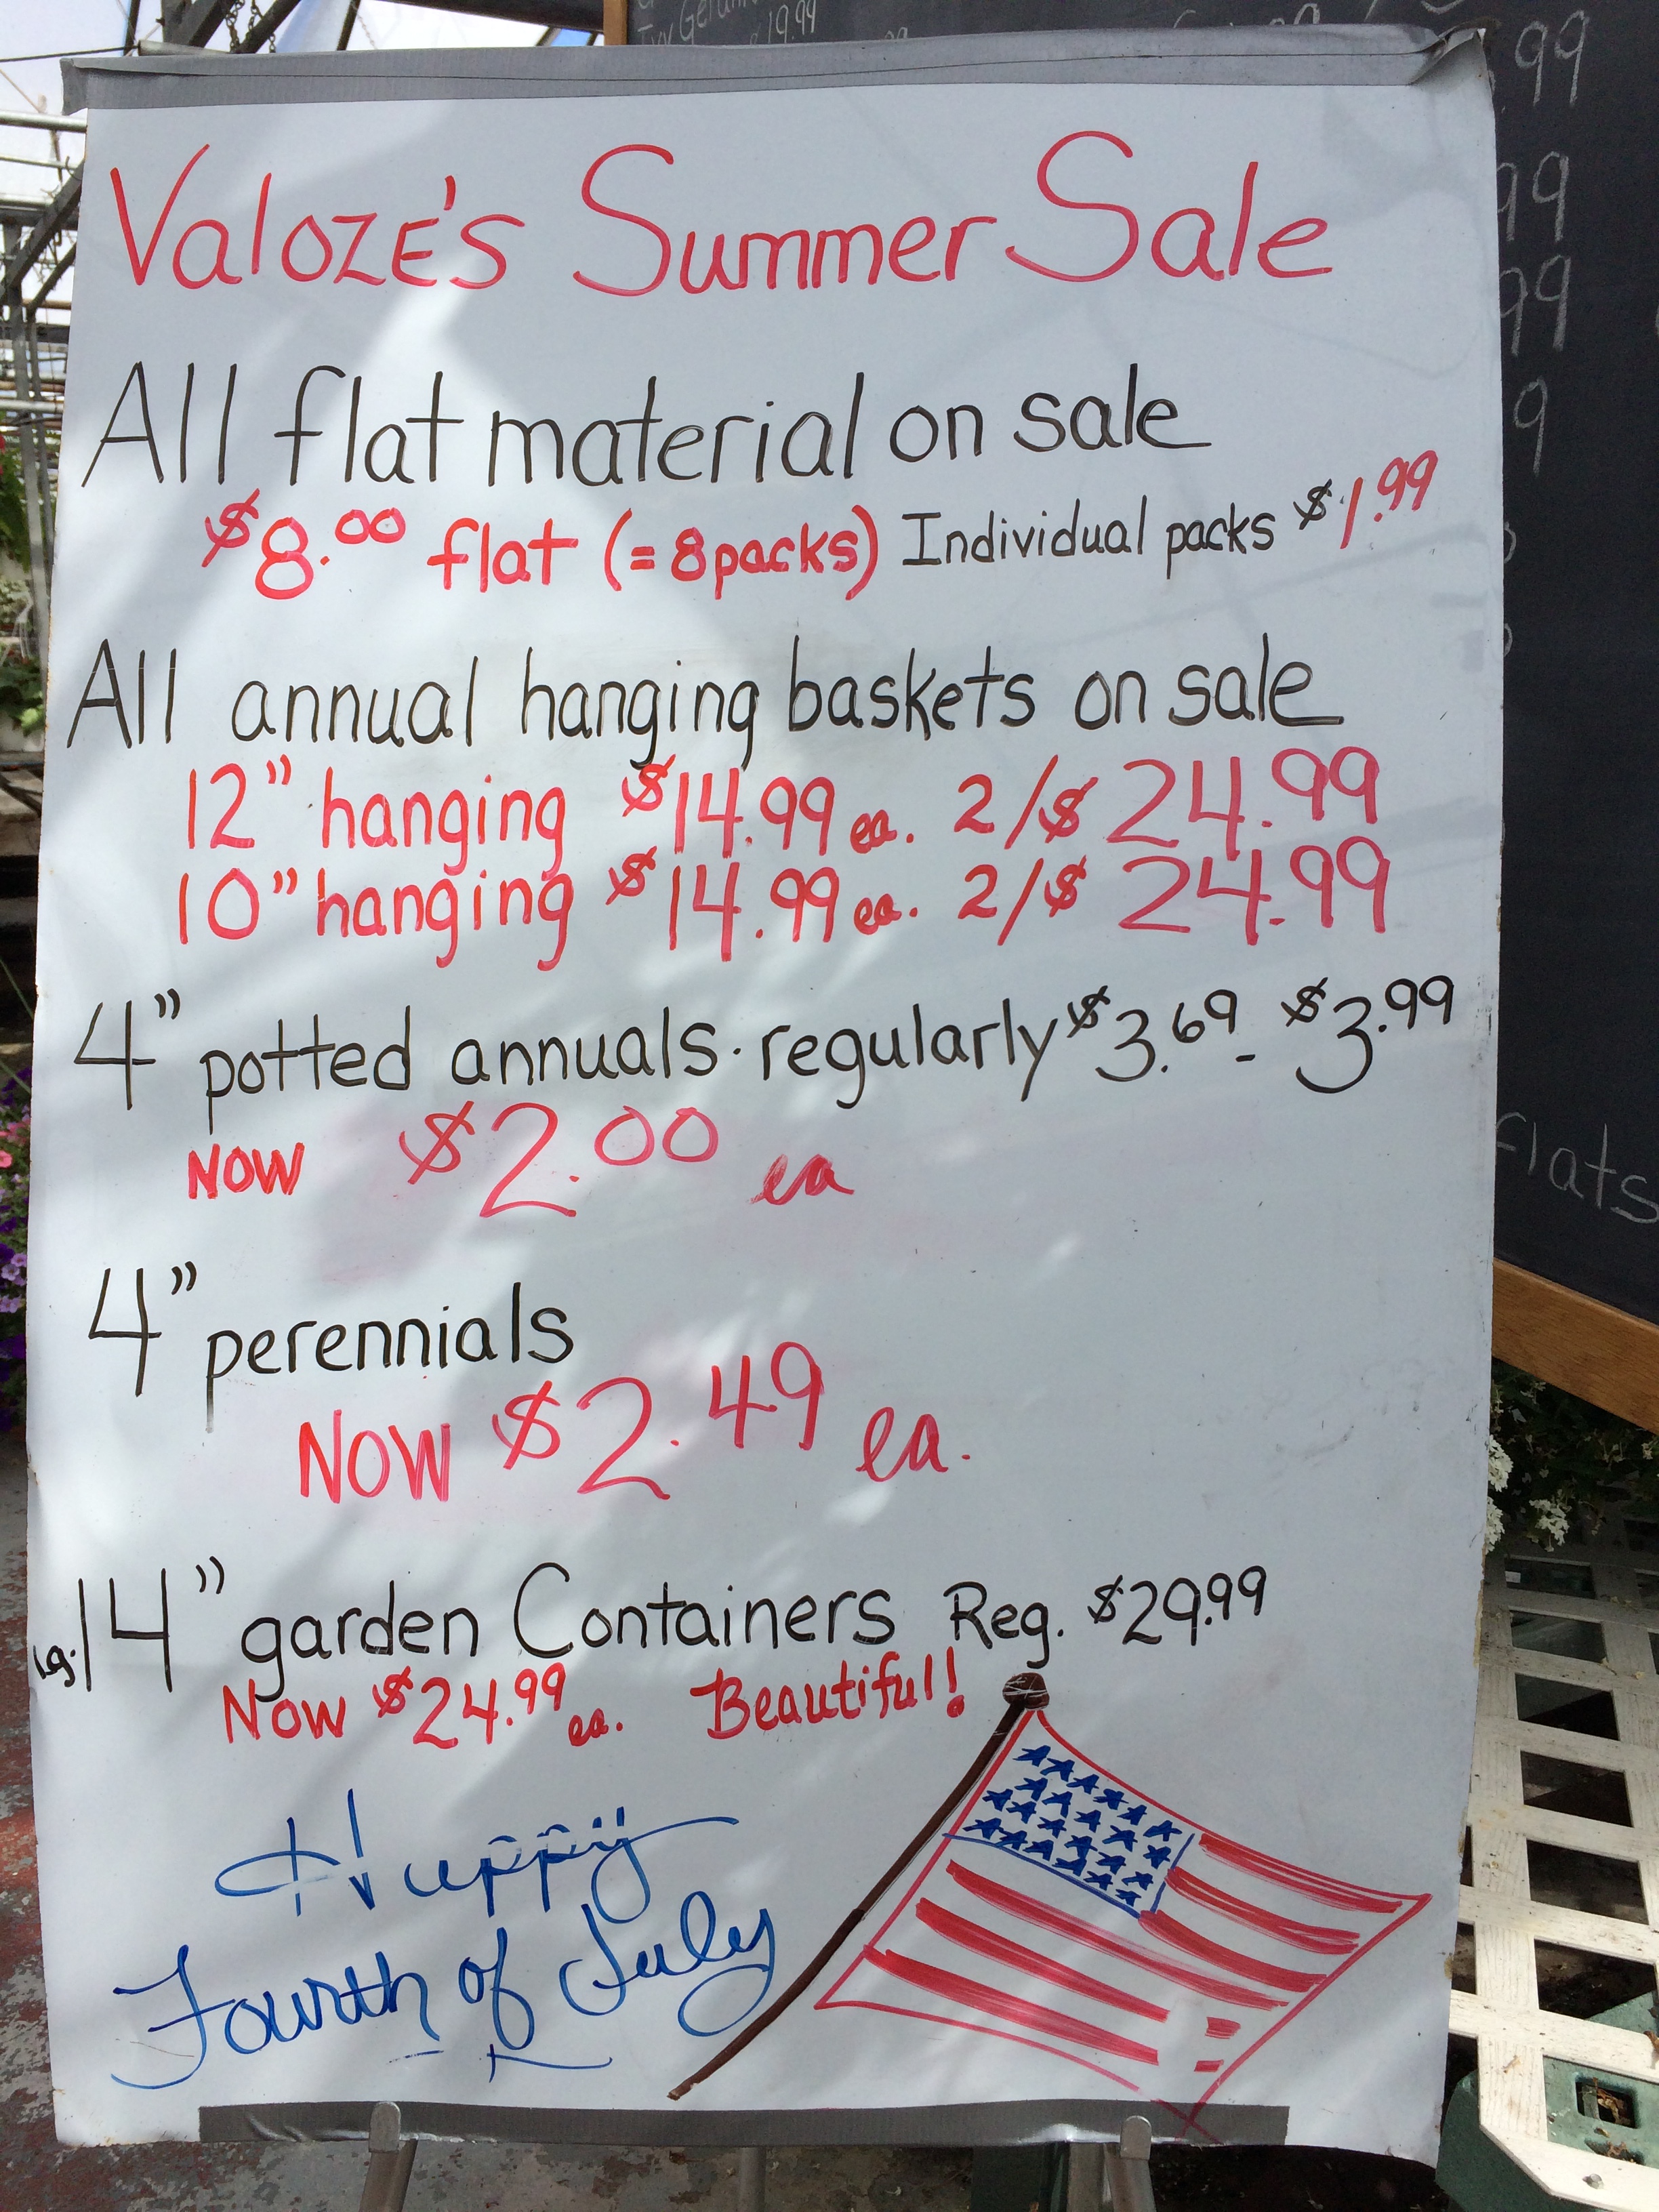 Valoze's Summer Sale
All flat material on sale
$8.00 flat (= 8 packs) Individual packs $1.99
All annual hanging baskets on sale
12" hanging $14.99 ea. 2/$ 24.99
10" hanging $14.99 ea. 2/$ 24.99
4" potted annuals. regularly $3.69 - $3.99
NOW $2.00 ea
4" perennials
NOW $2.49 ea.
lg. 14" garden Containers Reg. $29.99
Now $24.99 ea. Beautiful!
Happy
Fourth of July
19.99
99
99
99
9
flats